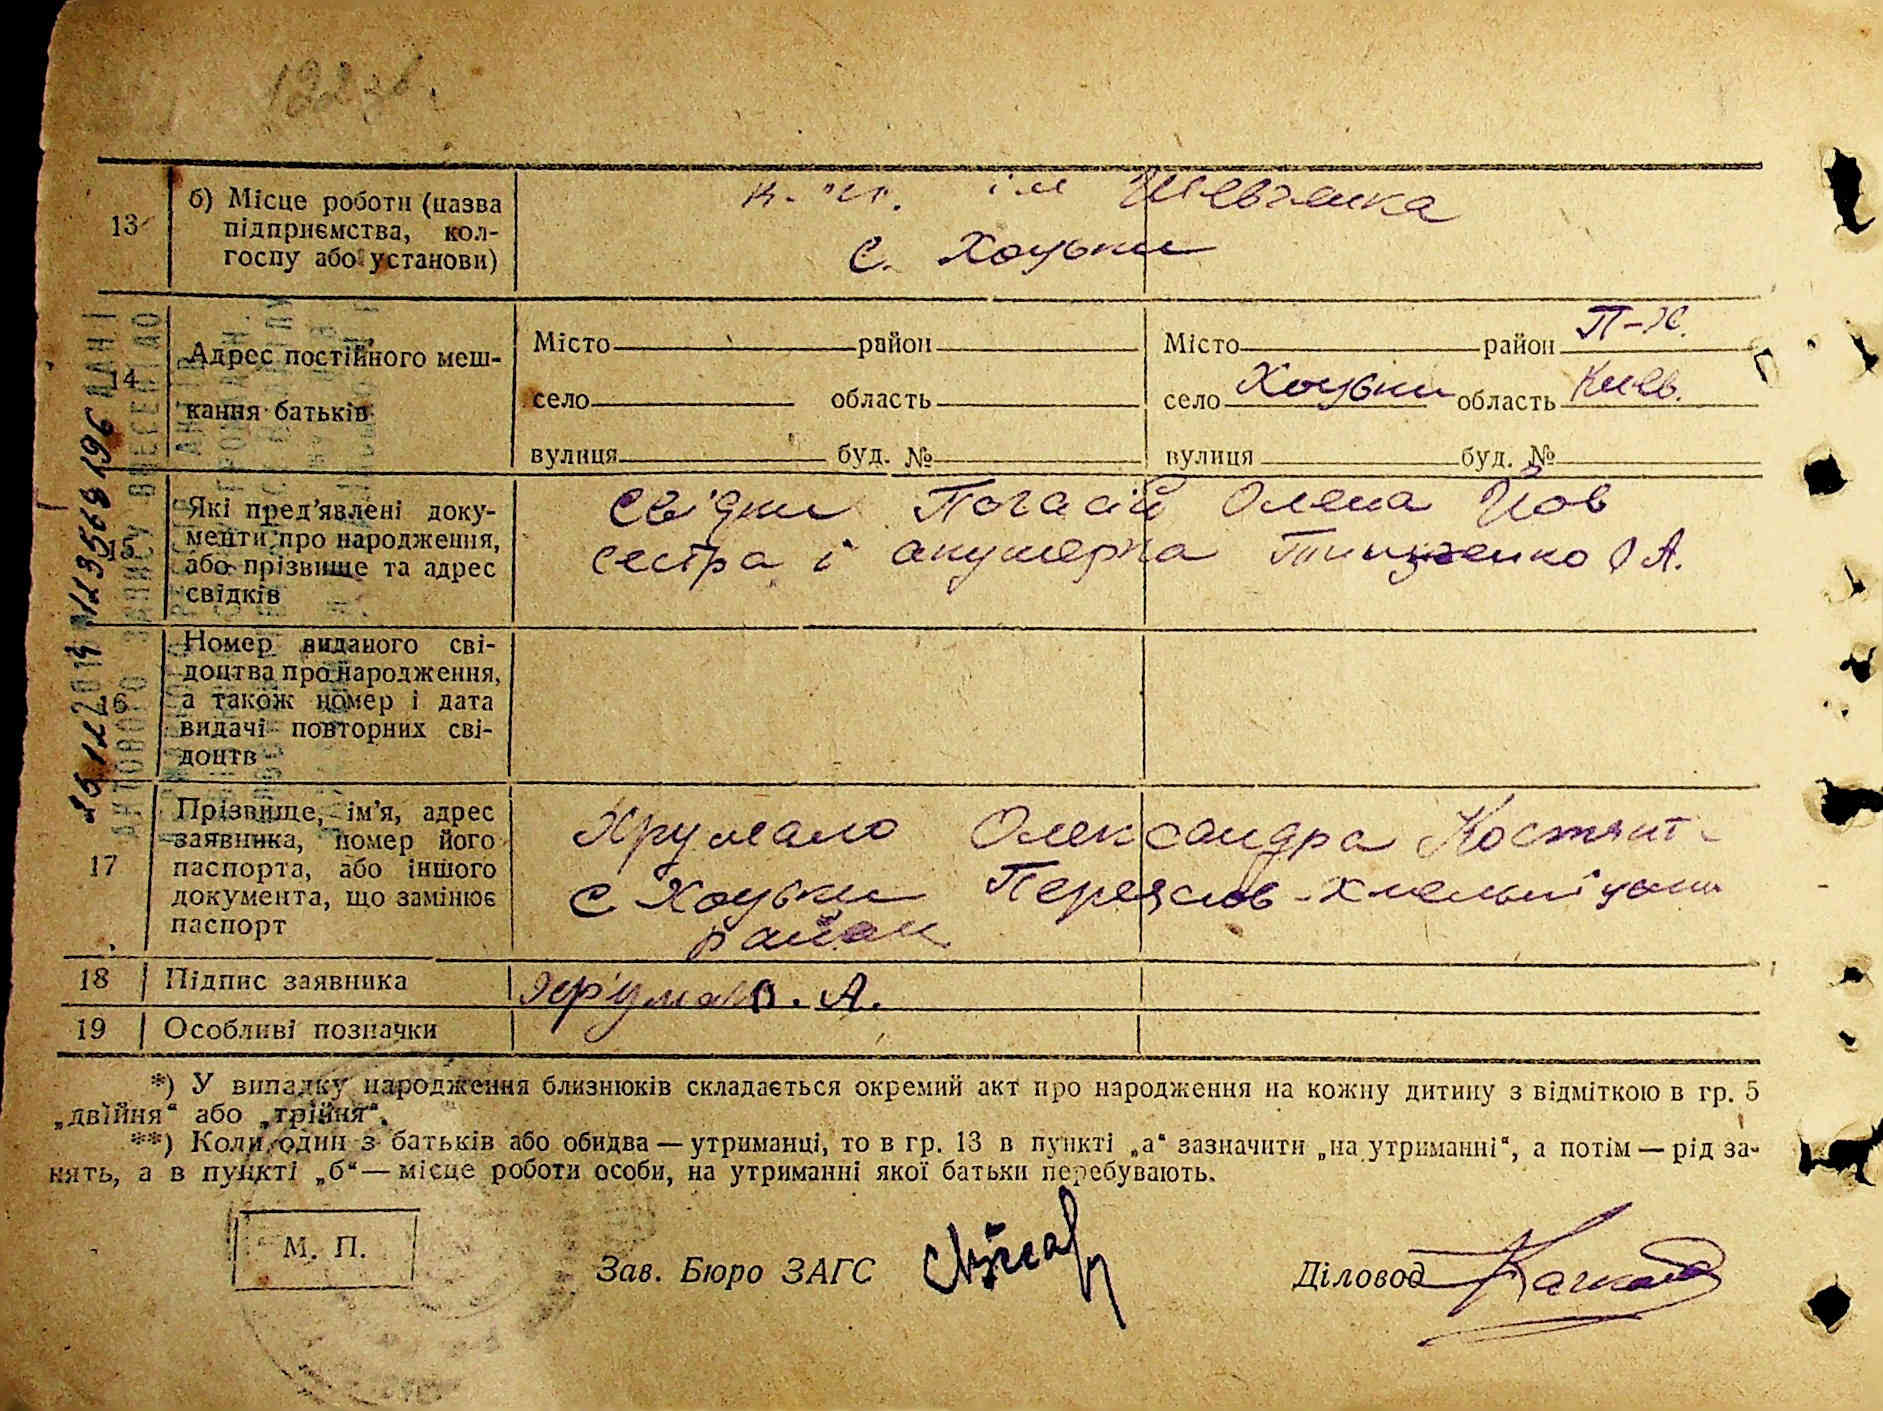 13 б) Місце роботи (назва
підприємства, кол-
госпу або установи)
ім Шевченка
с. Хоцьки
14 Адрес постійного меш-
кання батьків
Місто район Місто район П-Х.
село область село Хоцьки область Київ.
вулиця буд. № вулиця буд. №
15 Які пред'явлені доку-
менти про народження,
або прізвище та адрес
свідків
свідки Погасій Олена Йов
сестра і акушерка О А.
16 Номер виданого сві-
доцтва про народження,
а також номер і дата
видачі повторних сві-
доцтв
17 Прізвище, ім'я, адрес
заявника, номер його
паспорта, або іншого
документа, що замінює
паспорт
Хрумало Олександра Костянт-
с Хоцьки Переяслов-Хмельніцьки
район
18 Підпис заявника Хрумало. А.
19 Особливі позначки
*) У випадку народження близнюків складається окремий акт про народження на кожну дитину з відміткою в гр. 5
„двійня“ або „трійня“.
**) Коли один з батьків або обидва — утриманці, то в гр. 13 в пункті „а“ зазначити „на утриманні“, а потім — рід за-
нять, а в пункті „б“ — місце роботи особи, на утриманні якої батьки перебувають.
М. П.
Зав. Бюро ЗАГС
Діловод